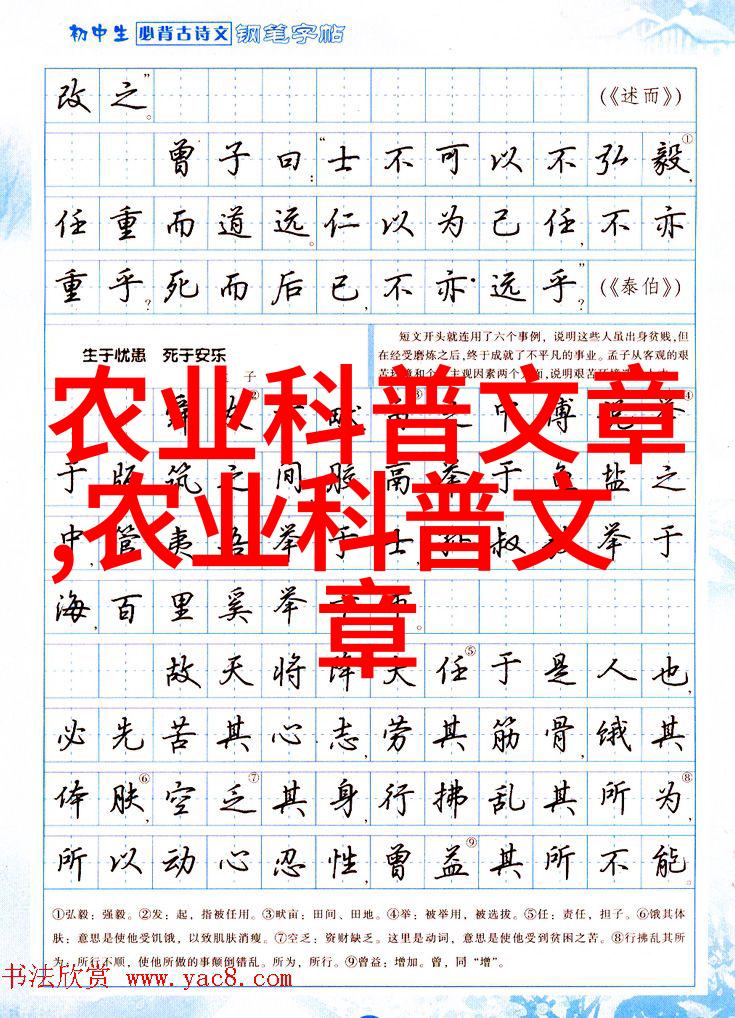 初中生 必背古诗文 钢笔字帖
改之。” (《述而》)
曾子曰:“士不可以不弘毅,①
任重而道远。仁以为己任,不亦
重乎?死而后已,不亦远乎?” (《泰伯》)
生于忧患 死于安乐
子
短文开头就连用了六个事例,说明这些人虽出身贫贱,但
在经受磨炼之后,终于成就了不平凡的事业。孟子从客观的艰
农业科普文章
,农业科普文
章
② ③ 中 傅 ④
于版筑之间,胶鬲举于鱼盐之
中,管夷吾举于士,叔举于
海,百里奚举
故天将降大任⑤于是人也,
必先苦其心志,劳其筋骨,饿其
体肤,⑥空乏⑦其身,行拂乱其所为,⑧
所以动心忍性,曾益⑨其所不能
①弘毅:强毅。②发:起,指被任用。③畎亩:田间、田地。④举:被举用,被选拔。⑤任:责任,担子。⑥饿其体
肤:意思是使他受饥饿,以致肌肤消瘦。⑦空乏:资财缺乏。这里是动词,意思是使他受到贫困之苦。⑧行拂乱其所
为:所行不顺,使他所做的事颠倒错乱。所为,所行。⑨曾益:增加。曾,同“增”。
书法欣赏 www.yac8.com